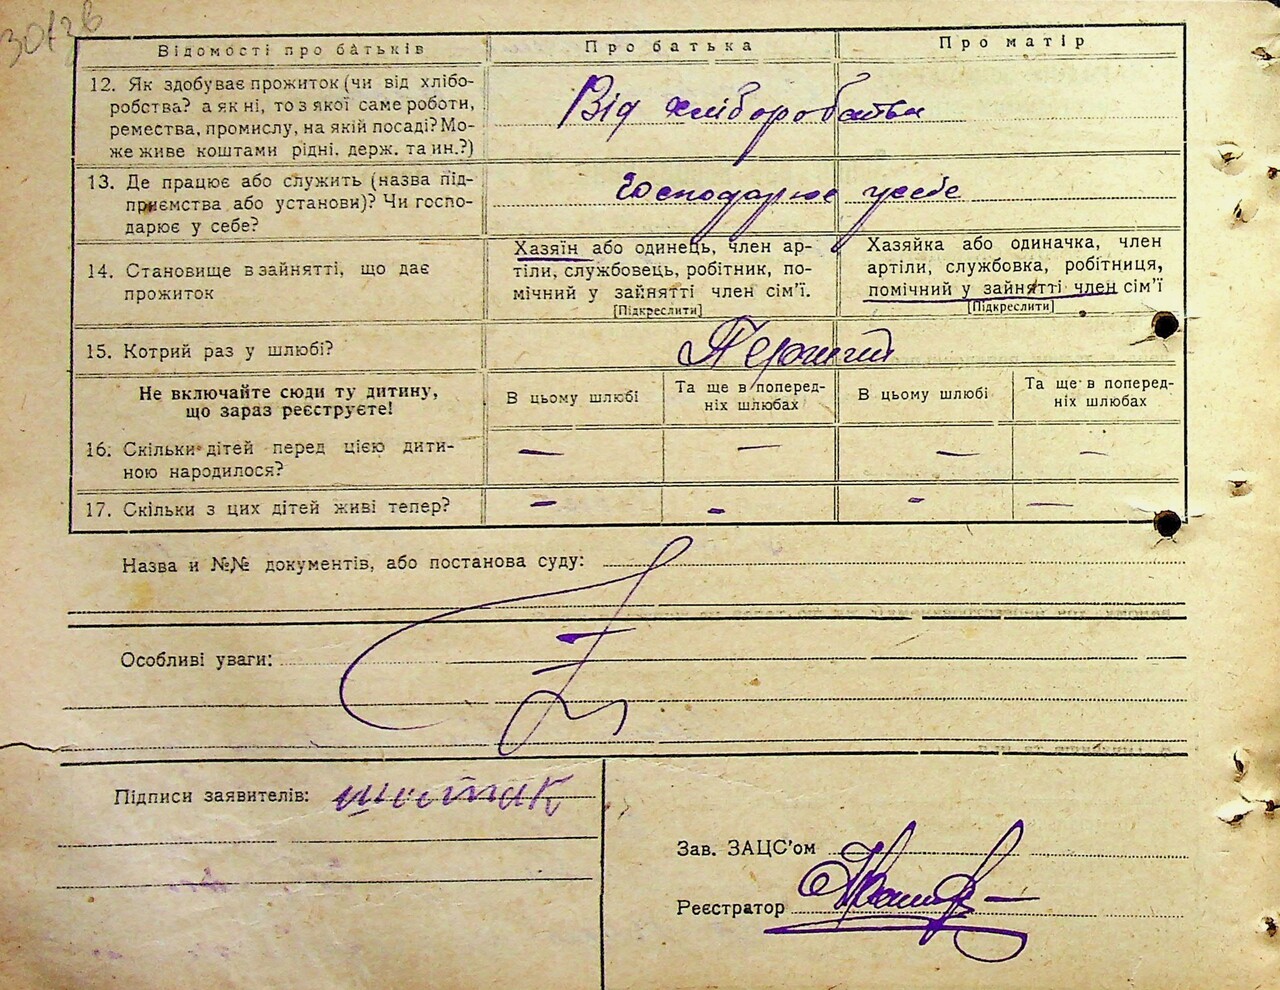 Відомості про батьків
Про батька
Про матір
12. Як здобуває прожиток (чи від хлібо-
робства? а як ні, то з якої саме роботи,
ремества, промислу, на якій посаді? Мо-
же живе коштами рідні. держ. та ин.?)
Від хліборобства
13. Де працює або служить (назва під-
приємства або установи)? Чи госпо-
дарює у себе?
Господарює у себе
14. Становище в зайнятті, що дає
прожиток
Хазяїн або одинець, член ар-
тіли, службовець, робітник, по-
мічний у зайнятті член сім'ї.
[Підкреслити]
Хазяйка або одиначка, член
артіли, службовка, робітниця,
помічний у зайнятті член сім'ї
[Підкреслити]
15. Котрий раз у шлюбі?
Перший
Не включайте сюди ту дитину,
що зараз реєструєте!
В цьому шлюбі
Та ще в поперед-
ніх шлюбах
В цьому шлюбі
Та ще в поперед-
ніх шлюбах
16. Скільки дітей перед цією дити-
ною народилося?
— — — —
17. Скільки з цих дітей живі тепер?
— — — —
Назва й №№ документів, або постанова суду:
Особливі уваги:
Підписи заявителів: шостак
Зав. ЗАЦС'ом
Реєстратор